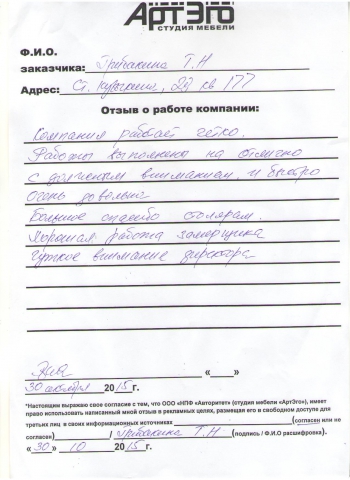 АртЭго
СТУДИЯ МЕБЕЛИ
Ф.И.О.
заказчика: Грибакина Т.Н
Адрес: 23 кв 177
Отзыв о работе компании:
Компания работает чётко.
Работы выполнены на отлично
с должным вниманием, и быстро
Очень довольна
Большое спасибо столярам.
Хорошая работа замерщика
Чуткое внимание директора
« »
30 октября 2015 г.
*Настоящим выражаю свое согласие с тем, что ООО «НПФ «Авторитет» (студия мебели «АртЭго»), имеет
право использовать написанный мной отзыв в рекламных целях, размещая его в свободном доступе для
третьих лиц в своих информационных источниках (согласен или не
согласен) / Грибакина Т.Н (подпись / Ф.И.О расшифровка).
«30» 10 2015 г.